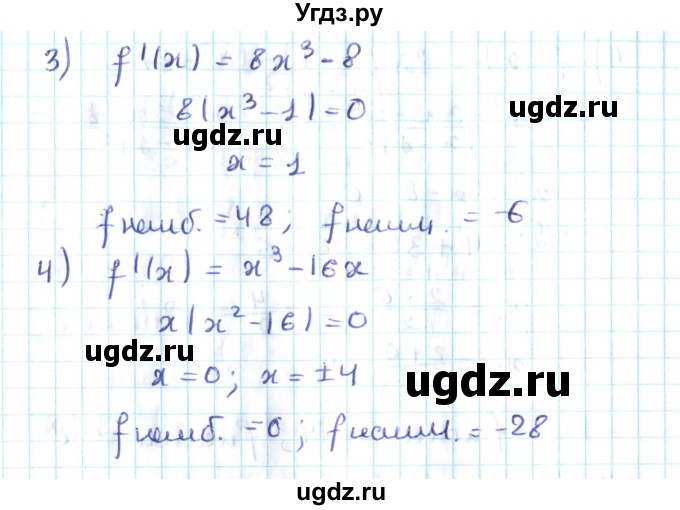 Угдз.ру
3) f'(x) = 8x³ - 8
8(x³ - 1) = 0
ugdz.ru ugdz.ru
x = 1
f наиб. = 48; f наим. = -6
4) f'(x) = x³ - 16x
x(x² - 16) = 0
ugdz.ru
x = 0; x = ±4
ugdz.ru
f наиб. = 0; f наим. = -28
ugdz.ru